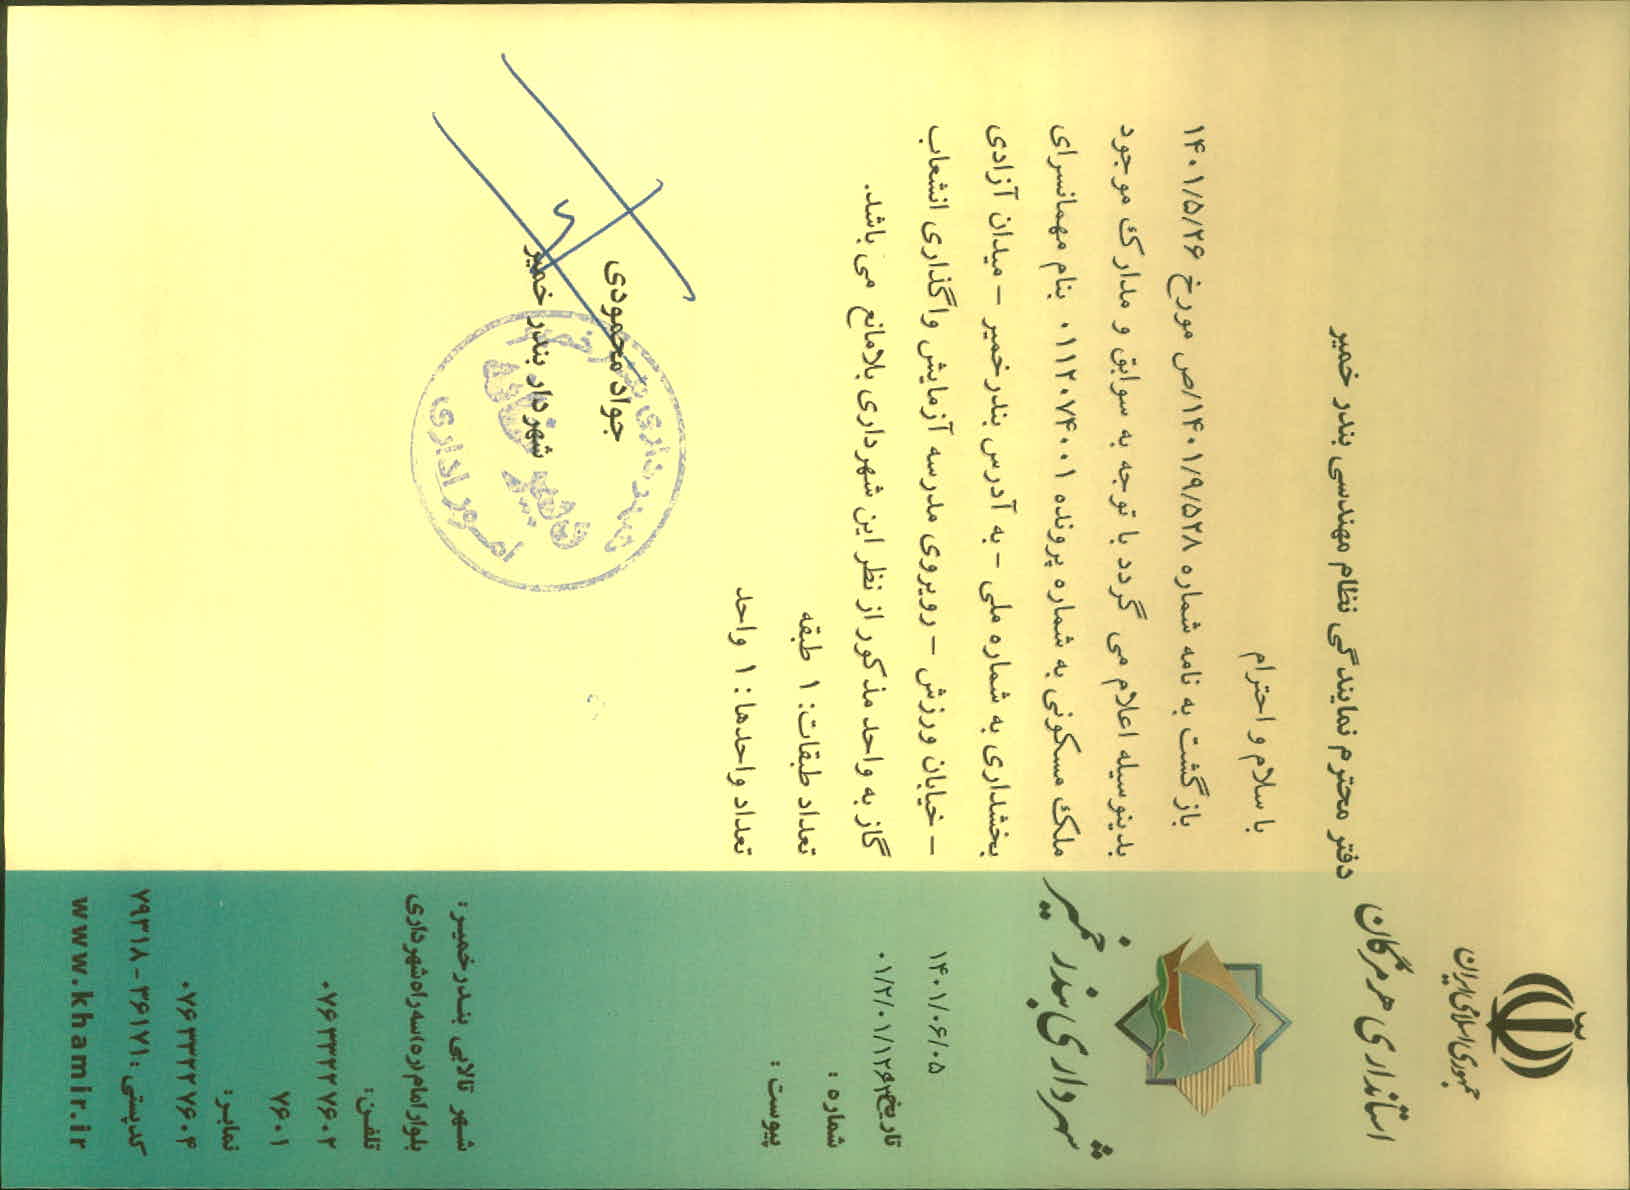 جمهوری اسلامی ایران
استانداری هرمزگان
شهرداری بندر خمیر
۱۴۰۱/۰۶/۰۵
تاریخ:
۰۱/۲/۰۱/۱۲۶۳
شماره :
پیوست :
دفتر محترم نمایندگی نظام مهندسی بندر خمیر
با سلام و احترام
بازگشت به نامه شماره ۱۴۰۱/۹/۵۲۸/ص مورخ ۱۴۰۱/۵/۲۶
بدینوسیله اعلام می گردد با توجه به سوابق و مدارک موجود
ملک مسکونی به شماره پرونده ۰۱۱۲۰۷۴۰۰۱ بنام مهمانسرای
بخشداری به شماره ملی - به آدرس بندرخمیر – میدان آزادی
– خیابان ورزش – روبروی مدرسه آزمایش واگذاری انشعاب
گاز به واحد مذکور از نظر این شهرداری بلامانع می باشد.
تعداد طبقات: ۱ طبقه
تعداد واحدها: ۱ واحد
جواد محمودی
شهردار بندر خمیر
امور اداری
شهر تالابی بندرخمیر:
بلوار امام (ره) سه راه شهرداری
تلفن:
۰۷۶۳۳۳۲۷۶۰۲
۷۶۰۱
نمابر:
۰۷۶۳۳۳۲۷۶۰۴
کدپستی: ۳۶۱۷۱-۷۹۳۱۸
www.khamir.ir